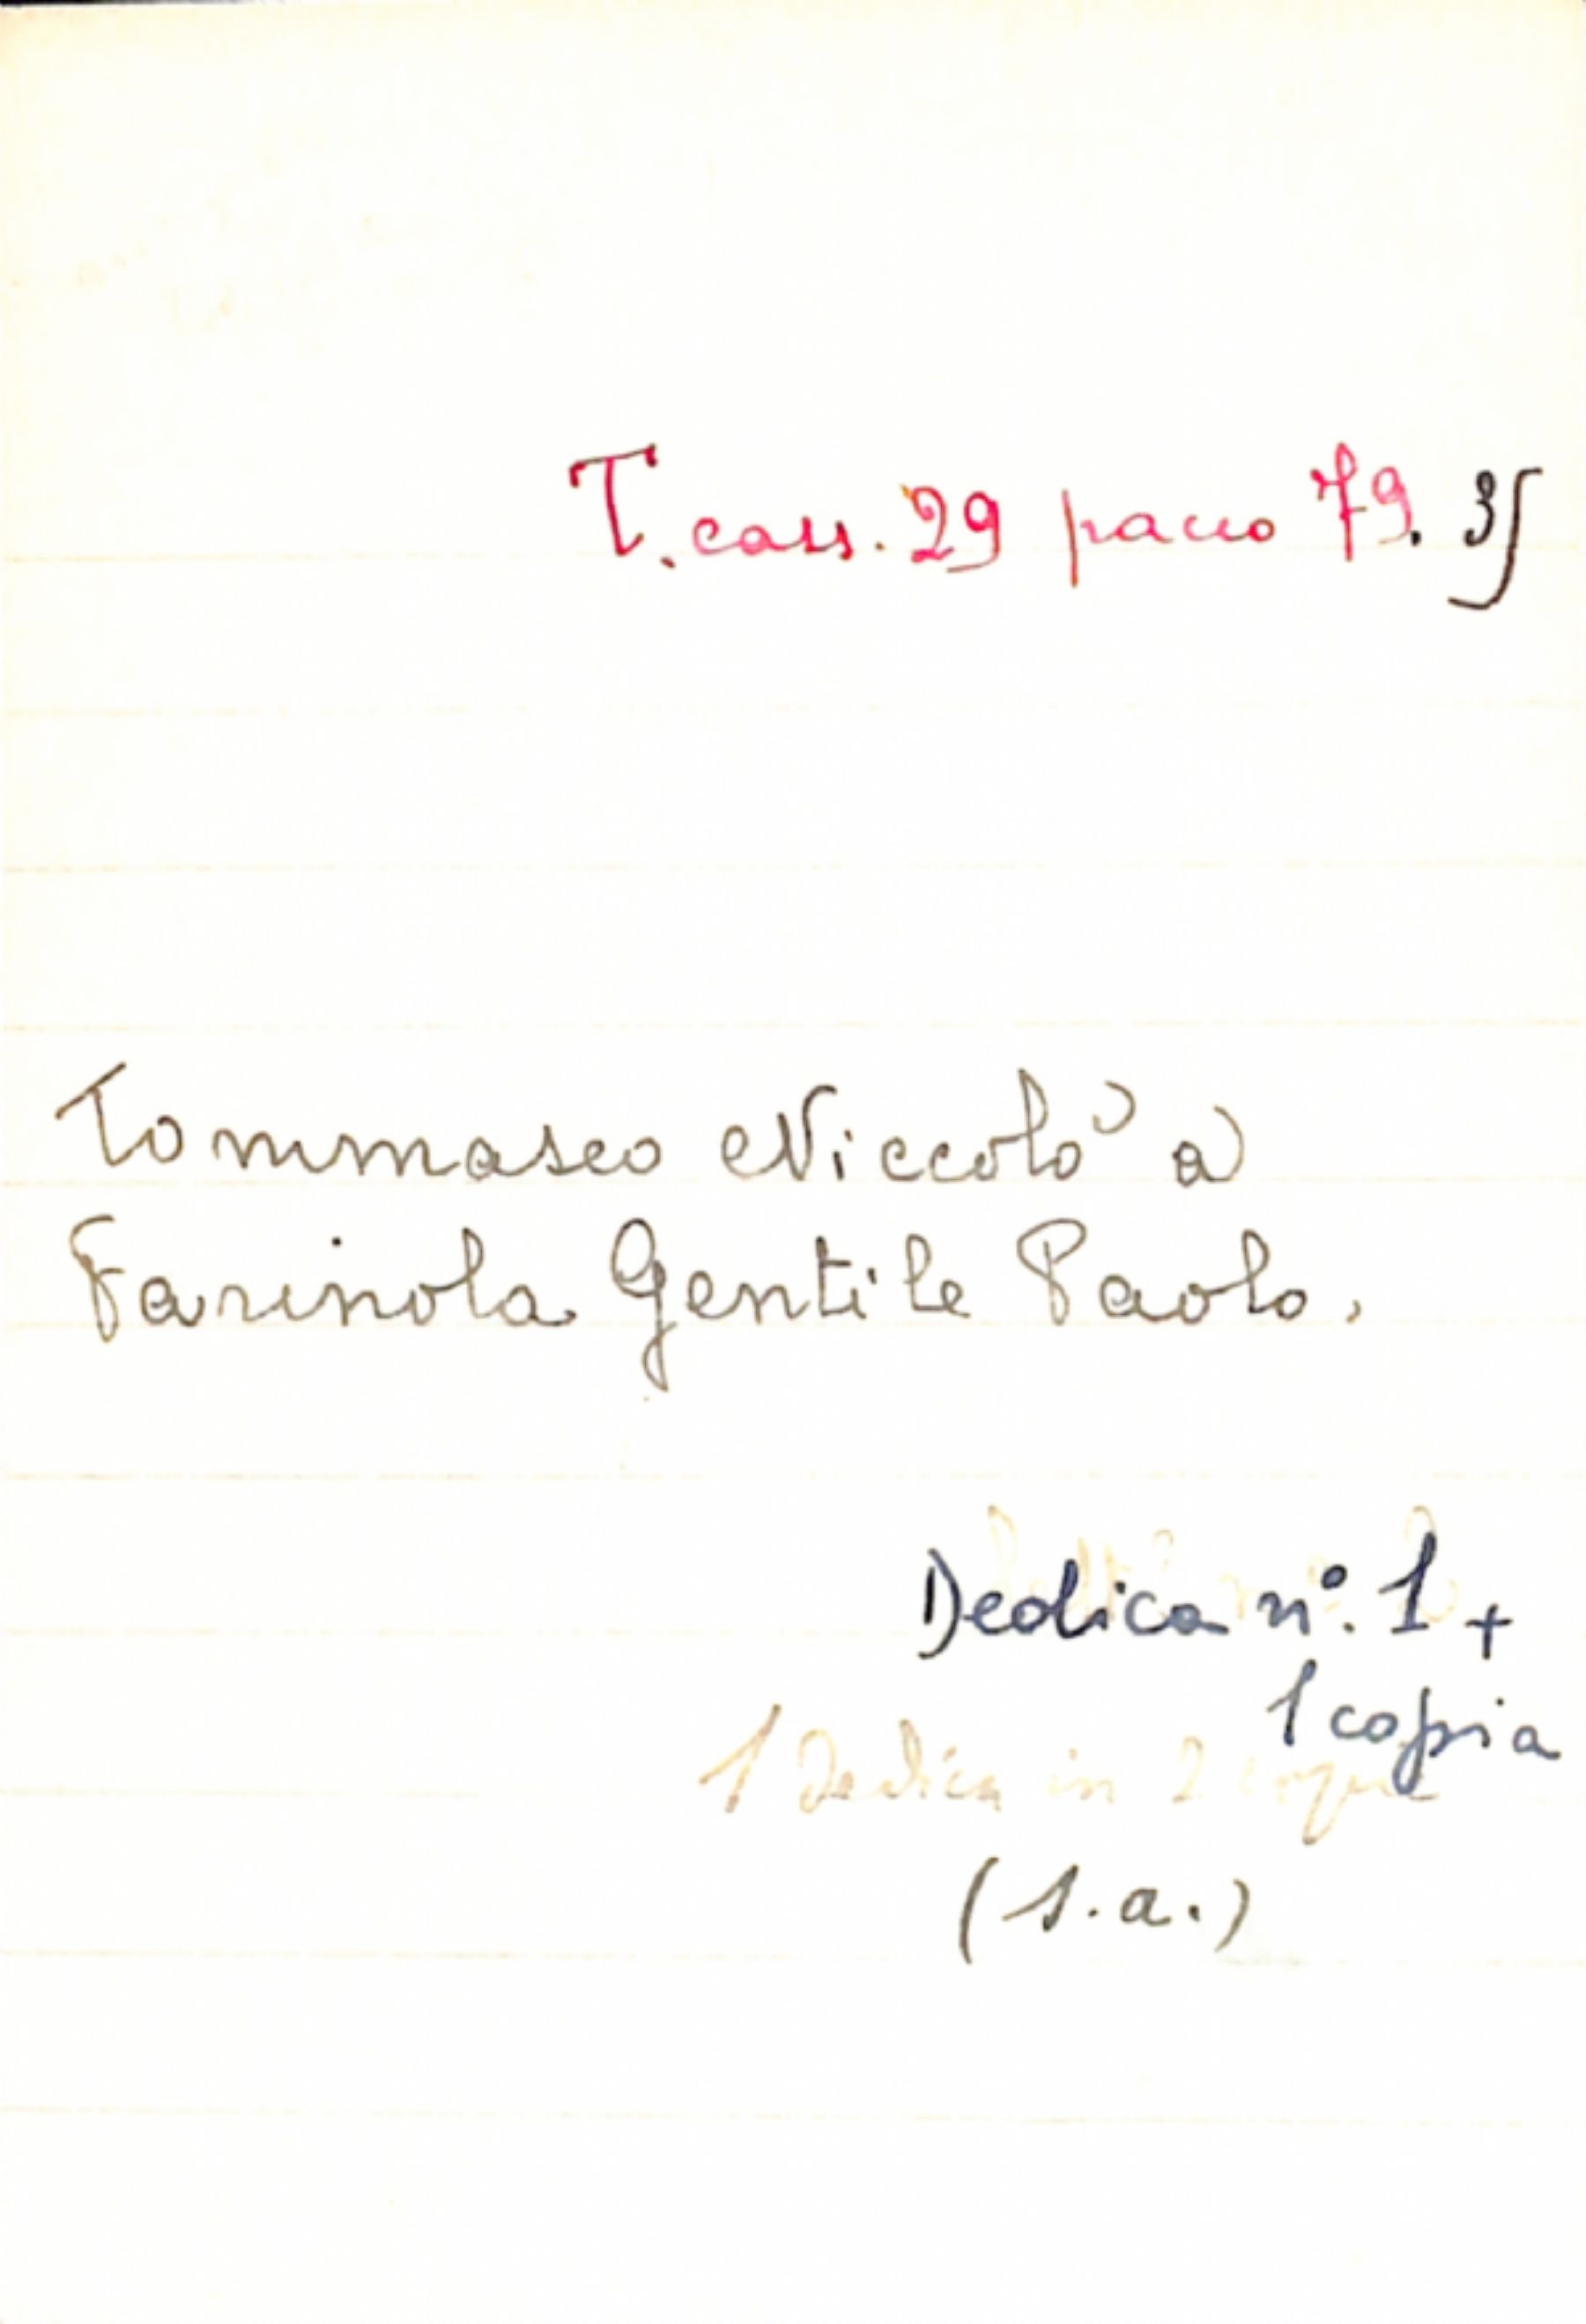 T. cass. 29 pacco 79. 3
Tommaseo Niccolò a
Farinola Gentile Paolo.
Dedica n°. 1 +
1 copia
1 Dedica in 2 copie
(s.a.)